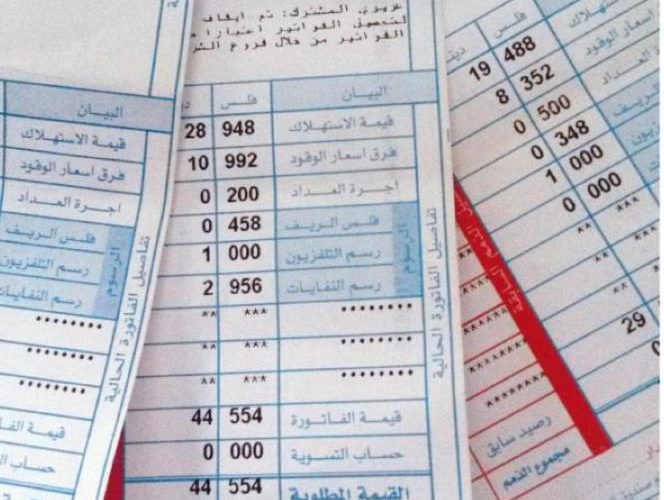 عزيزي المشترك: تم ايقاف
لتحصيل الفواتير اعتبارا
الفواتير من خلال فروع
البيان فلس
قيمة الاستهلاك 948 28
فرق اسعار الوقود 992 10
اجرة العداد 200 0
فلس الريف 458 0
رسم التلفزيون 000 1
رسم النفايات 956 2
******** *** **
******** *** **
******** *** **
قيمة الفاتورة 554 44
حساب التسوية 000 0
القيمة المطلوبة 554 44
الرسوم
تفاصيل الفاتورة الحالية
البيان
قيمة الاستهلاك
فرق اسعار الوقود
اجرة العداد
فلس الريف
رسم التلفزيون
رسم النفايات
********
********
********
قيمة الفا
حساب التس
الرسوم
تفاصيل الفاتورة الحالية
فلس
قيمة الاستهلاك 488 19
اسعار الوقود 352 8
العداد 500 0
الريف 348 0
التلفزيون 000 1
000 0
***
***
***
29
********
********
********
********
رصيد سابق
مجموع الذمم